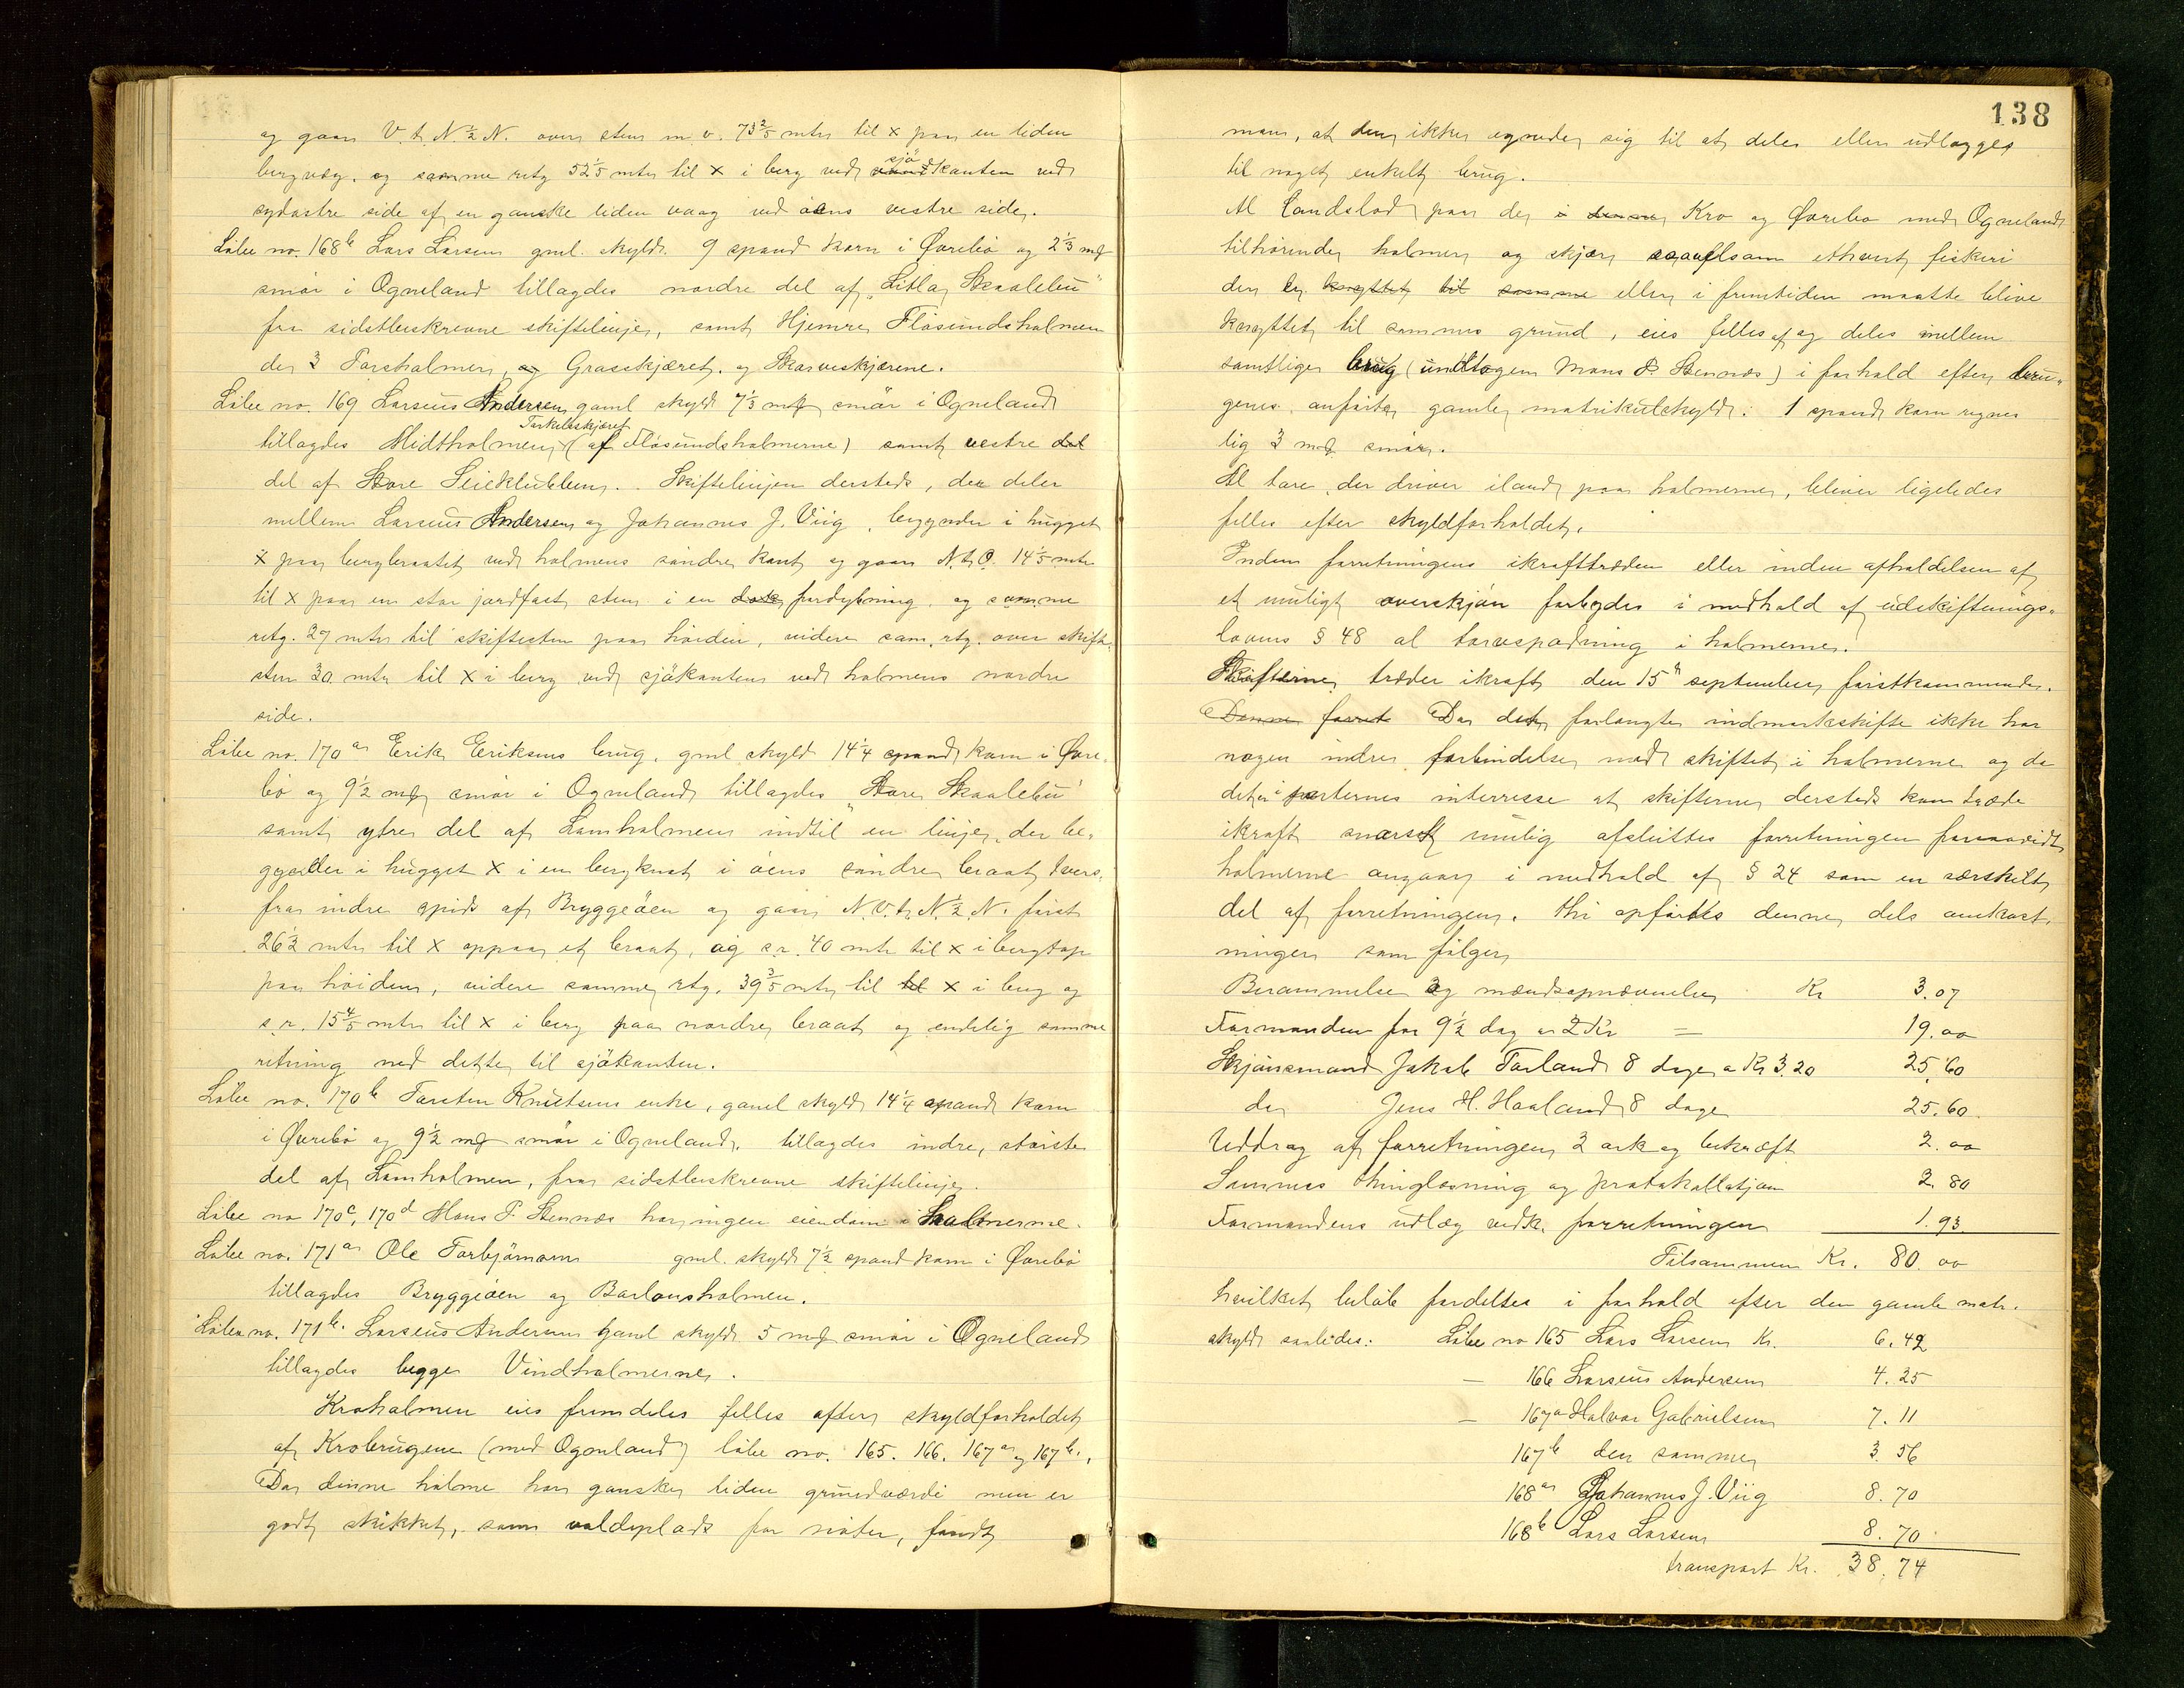 og gaar V. t. N. ½ N. over sten m. v. 73 2/5 mtr til x paa en liden
bergvæg. og samme retg 52 1/5 mtr til x i berg ved sjökanten ved
sydøstre side af en ganske liden vaag ved öens vestre side.
Löbe no. 168b Lars Larsen gml. skyld. 9 spand korn i Øvrebö og 2 1/3 mǥ
smör i Ogneland tillagdes nordre del af "Litla Skaalebu"
fra sidstbeskrevne skiftelinje, samt Hjemre Flösundsholmen
de 3 Torsholmer, Grasskjæret. og Skarveskjærene.
Löbe no. 169 Larseus Andersen gaml skyld 7 1/3 mǥ smör i Ogneland
Torkelsskjæret
tillagdes Midtholmen (af Flösundsholmerne) samt vestre del
del af Store Seieklubben. Skiftelinjen dersteds, der deler
mellem Larseus Andersen og Johannes J. Viig, begynder i hugget
x paa bergbraatet ved holmens söndre kant og gaar N. t. O. 14 1/5 mtr
til x paa en stor jordfast sten i en fordybning, og samme
retg. 27 mtr til skiftesten paa höiden, videre sam. rtg. over skifte-
sten 30 mtr til x i berg ved sjökanten ved holmens nordre
side.
Löbe no. 170a Erik Eriksens brug, gml skyld 14 1/4 spand korn i Øvre-
bö og 9 1/2 mǥ smör i Ogneland tillagdes "Store Skaalebu"
samt ytre del af Lamholmen indtil en linje, der be-
gynder i hugget x i en bergknat i öens söndre braat tvers
fra indre spids af Bryggeöen og gaar N. V. t. N. ½ N. först
26 1/2 mtr til x oppaa et braat, og s. r. 40 mtr til x i bergtop
paa höiden, videre samme rtg. 39 3/5 mtr til x i berg og
s. r. 15 4/5 mtr til x i berg paa nordre braat og endelig samme
retning ned dette til sjökanten.
Löbe no. 170b Torsten Knutsens enke, gaml skyld 14 1/4 spand korn
i Øvrebö og 9 1/2 mǥ smör i Ogneland tillagdes indre, störste
del af Lamholmen, fra sidstbeskrevne skiftelinje.
Löbe no 170c, 170d Mons P. Stennæs har ingen eiendom i holmerne.
Löbe no. 171a Ole Torbjörnsen gml. skyld 7 1/2 spand korn i Øvrebö
tillagdes Bryggeöen og Barlonsholmen.
Löbe no. 171b. Larseus Andersen gaml skyld 5 mǥ smör i Ogneland
tillagdes begge Vindholmerne.
Kroholmen eies fremdeles felles efter skyldforholdet
af Krobrugene (med Ogneland) löbe no. 165. 166. 167a og 167b.
Da denne holme har ganske liden grundværdi men er
godt skikket, som valdsplads for nöter, fandt
138
man, at den ikke egnede sig til at deles eller udlægges
til noget enkelt brug.
Al landslod paa de i denne Kro og Øvrebö med Ogneland
tilhörende holmer og skjær saavelsom ethvert fiskeri
der er knyttet til samme eller i fremtiden maatte blive
knyttet til sammes grund, eies felles af og deles mellem
samtlige brug (undtagen Mons P. Stennæs) i forhold efter bru-
genes anförte gamle matrikulskyld: 1 spand korn regnes
lig 3 mǥ smör.
Al tare, der driver iland paa holmerne, bliver ligeledes
felles efter skyldforholdet.
Inden forretningens ikrafttræden eller inden afholdelsen af
et muligt overskjön forbydes i medhold af udskiftnings-
lovens § 48 al torvspadning i holmerne.
Skifterne træder ikraft den 15de september förstkommende.
Denne forret Da det forlangte indmarksskifte ikke har
nogen indre forbindelse med skiftet i holmerne og da
det er i parternes interresse at skifterne dersteds kom træde
ikraft snarest mulig afsluttes forretningen forsaavidt
holmerne angaar i medhold af § 24 som en særskilt
del af forretningen. Thi opförtes denne dels omkost-
ninger som fölger
Berammelse og mændsopnævnelse Kr 3.07
Formanden for 9 1/2 dag a 2 Kr — 19.00
Skjönsmand Jakob Torland 8 dage a Kr 3.20 25.60
do Jens H. Haaland 8 dage 25.60
Uddrag af forretningen 2 ark og bekræft 2.00
Sammes thinglæsning og protokollatjon 2.80
Formandens udlæg vedk. forretningen 1.93
Tilsammen Kr. 80.00
hvilket belöb fordeltes i forhold efter den gamle matr.
skyld saaledes: Löbe no 165 Lars Larsen Kr. 6.42
— 166 Larseus Andersen 4.25
— 167a Halvor Gabrielsen 7.11
167b den samme 3.56
168a Johannes J. Viig 8.70
168b Lars Larsen 8.70
transport Kr. 38.74